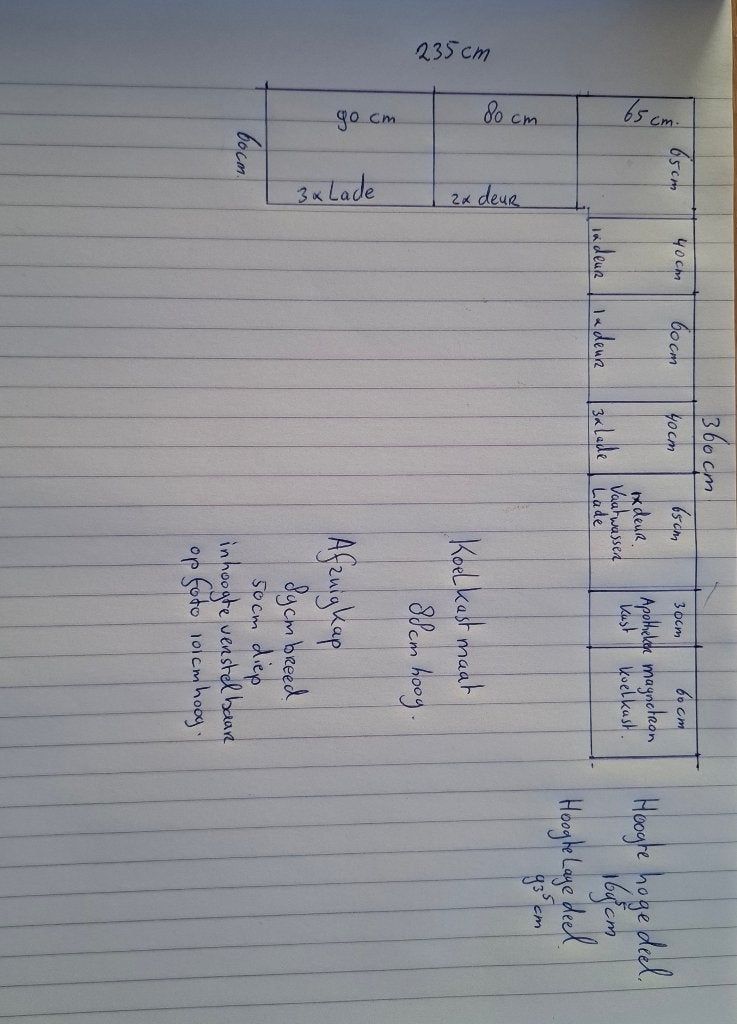 235cm
90 cm
80 cm
65 cm.
65cm
60cm.
3x Lade
2x deur
40cm
1x deur
60cm
1x deur
40cm
3x Lade
360cm
65cm
1x deur.
Vaatwasser
Lade
30cm
Apotheker
kast
60cm
magnetron
koelkast.
Koelkast maat
88cm hoog.
Afzuigkap
89cm breed
50cm diep
in hoogte verstelbaar
op foto 101cm hoog.
Hoogte hoge deel.
169⁵cm
Hoogte Lage deel
93⁵cm